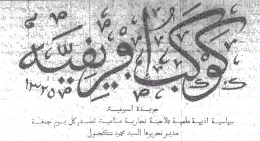 كوكب أفريقية
١٣٢٥
جريدة اسبوعية
سياسية ادبية علمية فلاحية تجارية صناعية تصدر كل يوم جمعة
مدير تحريرها السيد محمود كحول